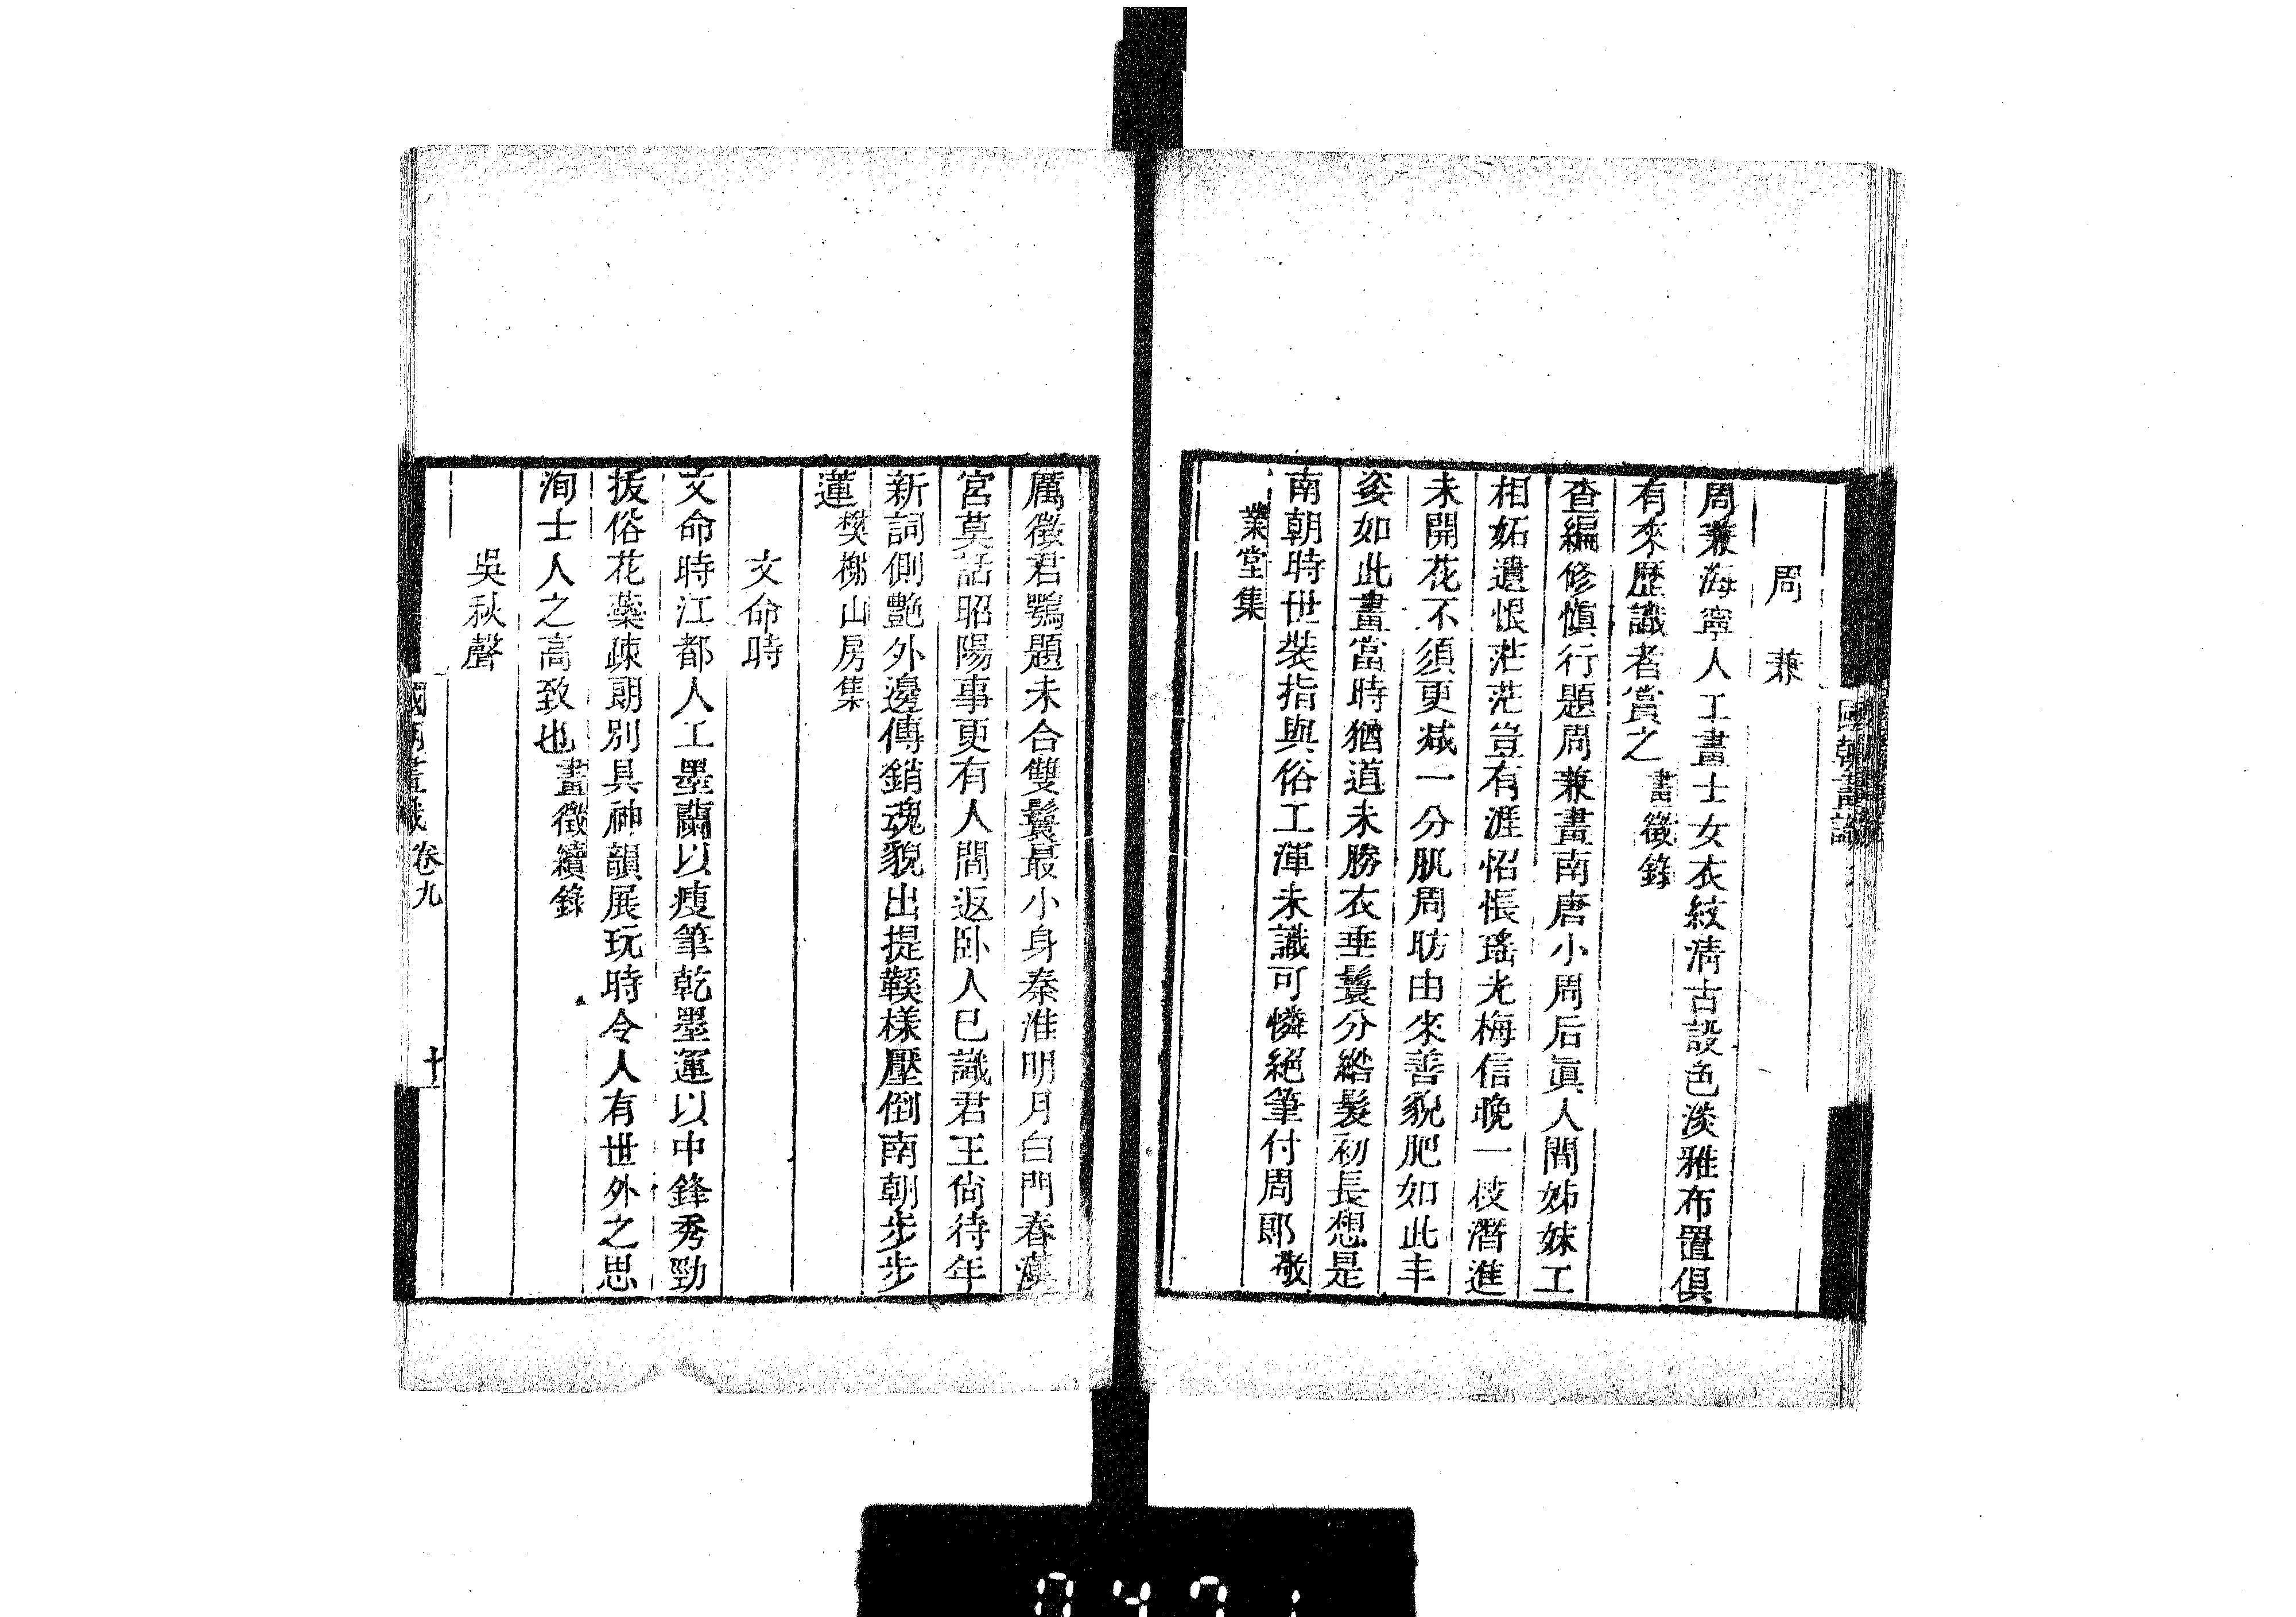 周兼
周兼海寧人工畫士女衣紋淸古設色淡雅布置俱
有來歷識者賞之畫徵錄
查編修愼行題周兼畫南唐小周后眞人間姊妹工
相妬遺恨茫茫豈有涯怊悵瑤光梅信晚一枝潛進
未開花不須更減一分肌周昉由來善貌肥如此丰
姿如此畫當時猶道未勝衣垂鬟分綹髮初長想是
南朝時世裝指與俗工渾未識可憐絕筆付周郎敬
業堂集
厲徵君鶚題未合雙鬟最小身秦淮明月白門春漢
宮莫話昭陽事更有人間返卧人已識君王尙待年
新詞側艷外邊傳銷魂貌出提鞵樣壓倒南朝步步
蓮樊榭山房集
文命時
文命時江都人工墨蘭以瘦筆乾墨運以中鋒秀勁
拔俗花蘂疎朗別具神韻展玩時令人有世外之思
洵士人之高致也畫徵續錄
吳秋聲
國朝畫識
卷九
十一